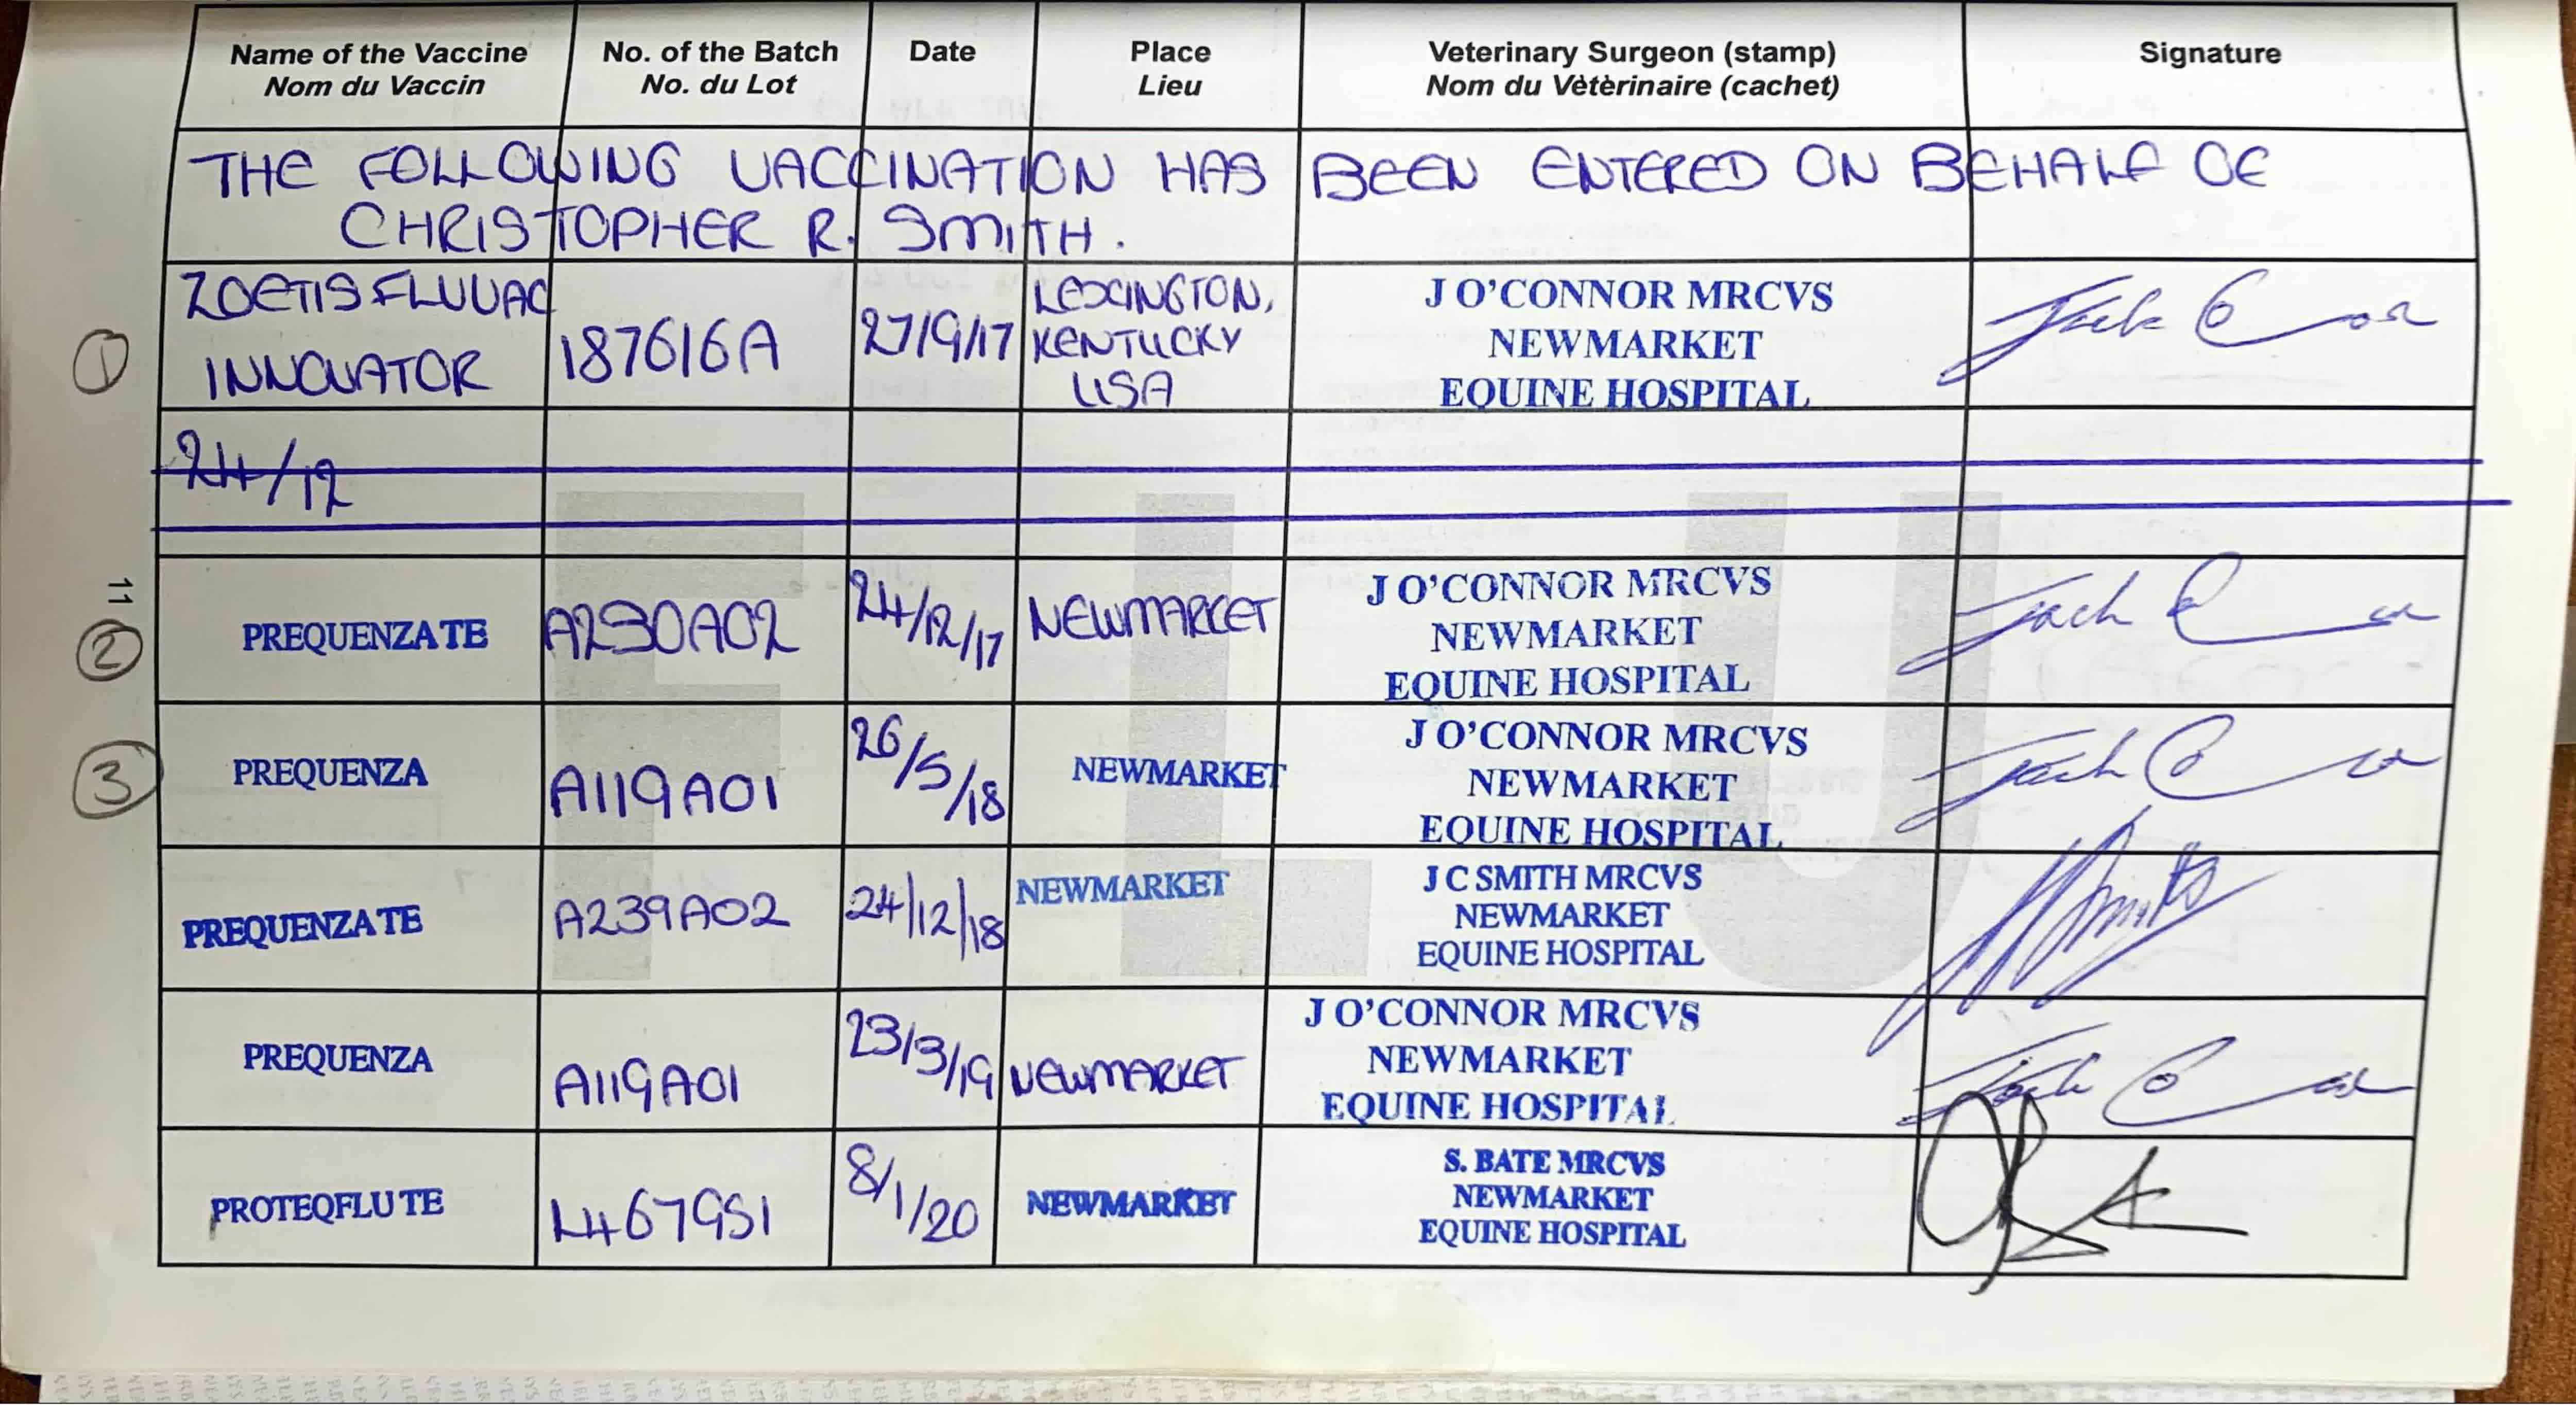 Name of the Vaccine No. of the Batch Date Place Veterinary Surgeon (stamp) Signature
Nom du Vaccin No. du Lot Lieu Nom du Vètèrinaire (cachet)
THE FOLLOWING VACCINATION HAS BEEN ENTERED ON BEHALF OF
CHRISTOPHER R. SMITH.
①
ZOETIS FLUVAC
INNOVATOR
187616A
27/9/17
LEXINGTON,
KENTUCKY
USA
J O'CONNOR MRCVS
NEWMARKET
EQUINE HOSPITAL
24/12
11
②
PREQUENZA TE
A230A02
24/12/17
NEWMARKET
J O'CONNOR MRCVS
NEWMARKET
EQUINE HOSPITAL
③
PREQUENZA
A119A01
26/5/18
NEWMARKET
J O'CONNOR MRCVS
NEWMARKET
EQUINE HOSPITAL
PREQUENZA TE
A239A02
24/12/18
NEWMARKET
J C SMITH MRCVS
NEWMARKET
EQUINE HOSPITAL
PREQUENZA
A119A01
23/3/19
NEWMARKET
J O'CONNOR MRCVS
NEWMARKET
EQUINE HOSPITAL
PROTEQFLU TE
L467951
8/1/20
NEWMARKET
S. BATE MRCVS
NEWMARKET
EQUINE HOSPITAL
FLU